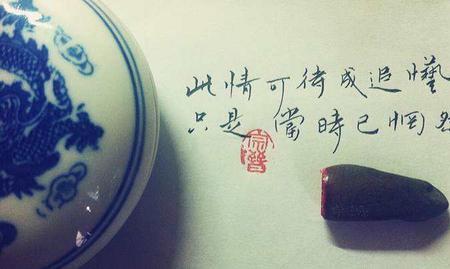 此情可待成追憶
只是當時已惘